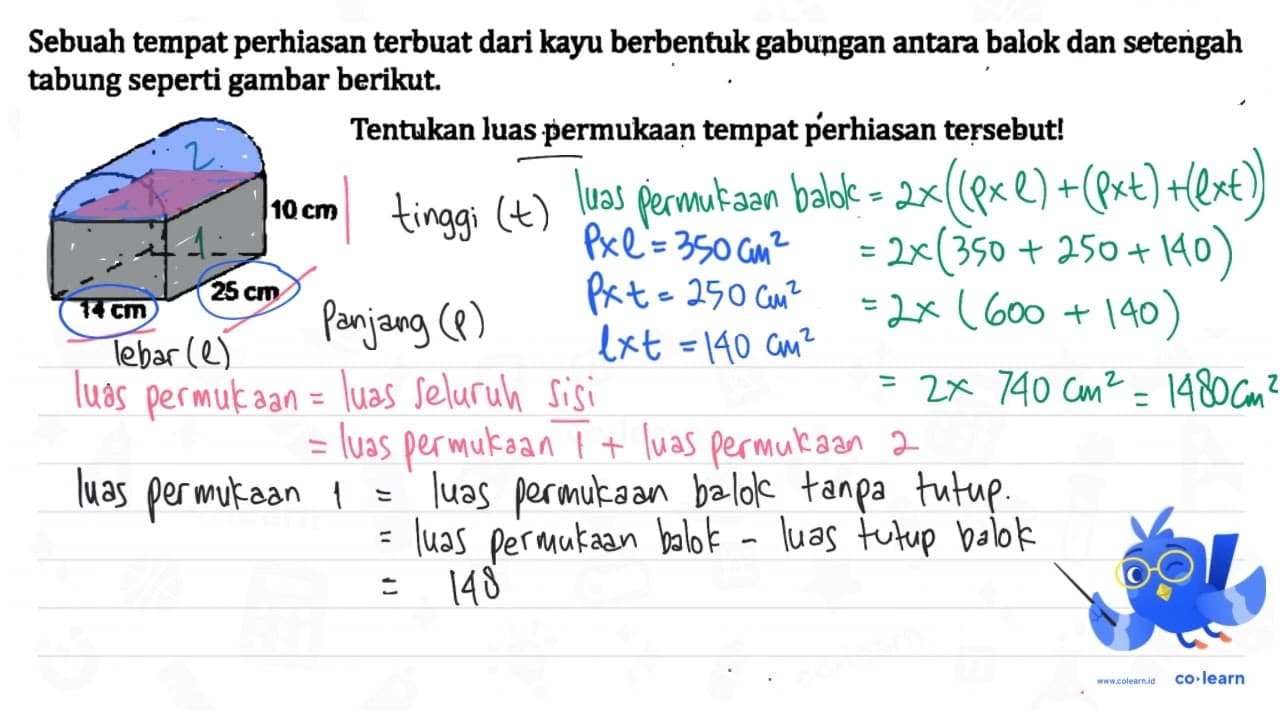 Sebuah tempat perhiasan terbuat dari kayu berbentuk gabungan antara balok dan setengah
tabung seperti gambar berikut.
Tentukan luas permukaan tempat perhiasan tersebut!
2
1
10 cm
25 cm
14 cm
tinggi (t)
Panjang (p)
lebar (l)
luas permukaan balok = 2x((pxl) + (pxt) + (lxt))
= 2x(350 + 250 + 140)
= 2x (600 + 140)
= 2x 740 cm² = 1480 cm²
Pxl = 350 cm²
Pxt = 250 cm²
lxt = 140 cm²
luas permukaan = luas seluruh sisi
= luas permukaan 1 + luas permukaan 2
luas permukaan 1 = luas permukaan balok tanpa tutup.
= luas permukaan balok - luas tutup balok
= 148
www.colearn.id co·learn